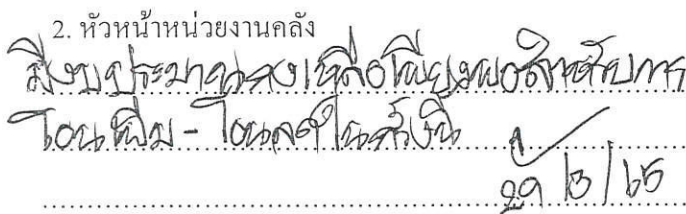 2. หัวหน้าหน่วยงานคลัง
มีงบประมาณคงเหลือเพียงพอสำหรับการ
โอนเพิ่ม - โอนลดในครั้งนี้
29 / 3 / 65